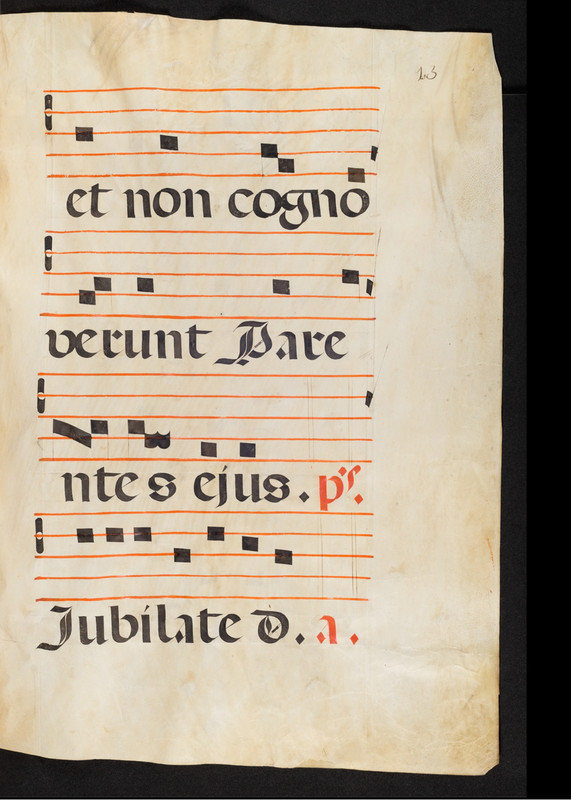 et non cogno
verunt Pare
ntes ejus. ps.
Jubilate D. a.